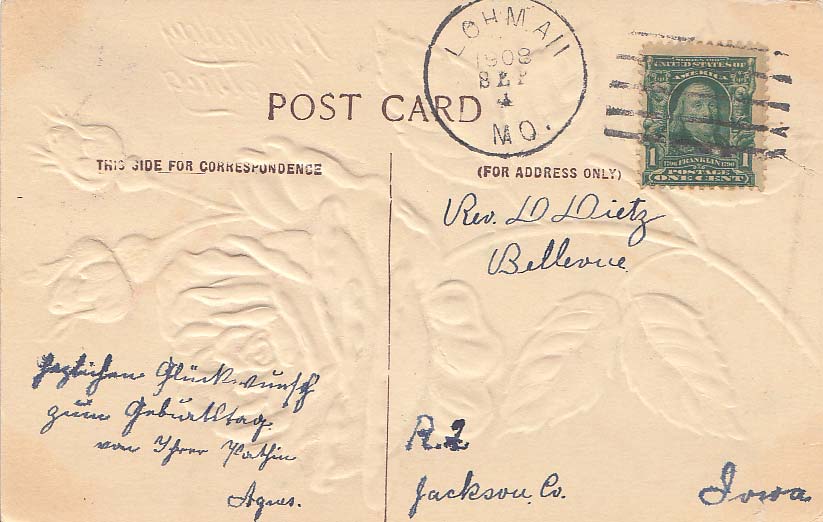 LOHMAN
1908
SEP
4
MO.
SERIES 1902
UNITED STATES OF
AMERICA
1 FRANKLIN 1
POSTAGE
ONE CENT
POST CARD
THIS SIDE FOR CORRESPONDENCE
(FOR ADDRESS ONLY)
Rev. D Dietz
Bellevue
R. 2
Jackson, Co. Iowa
Herzlichen Glückwunsch
zum Geburtstag.
von Ihrer Pathin
Agnes.